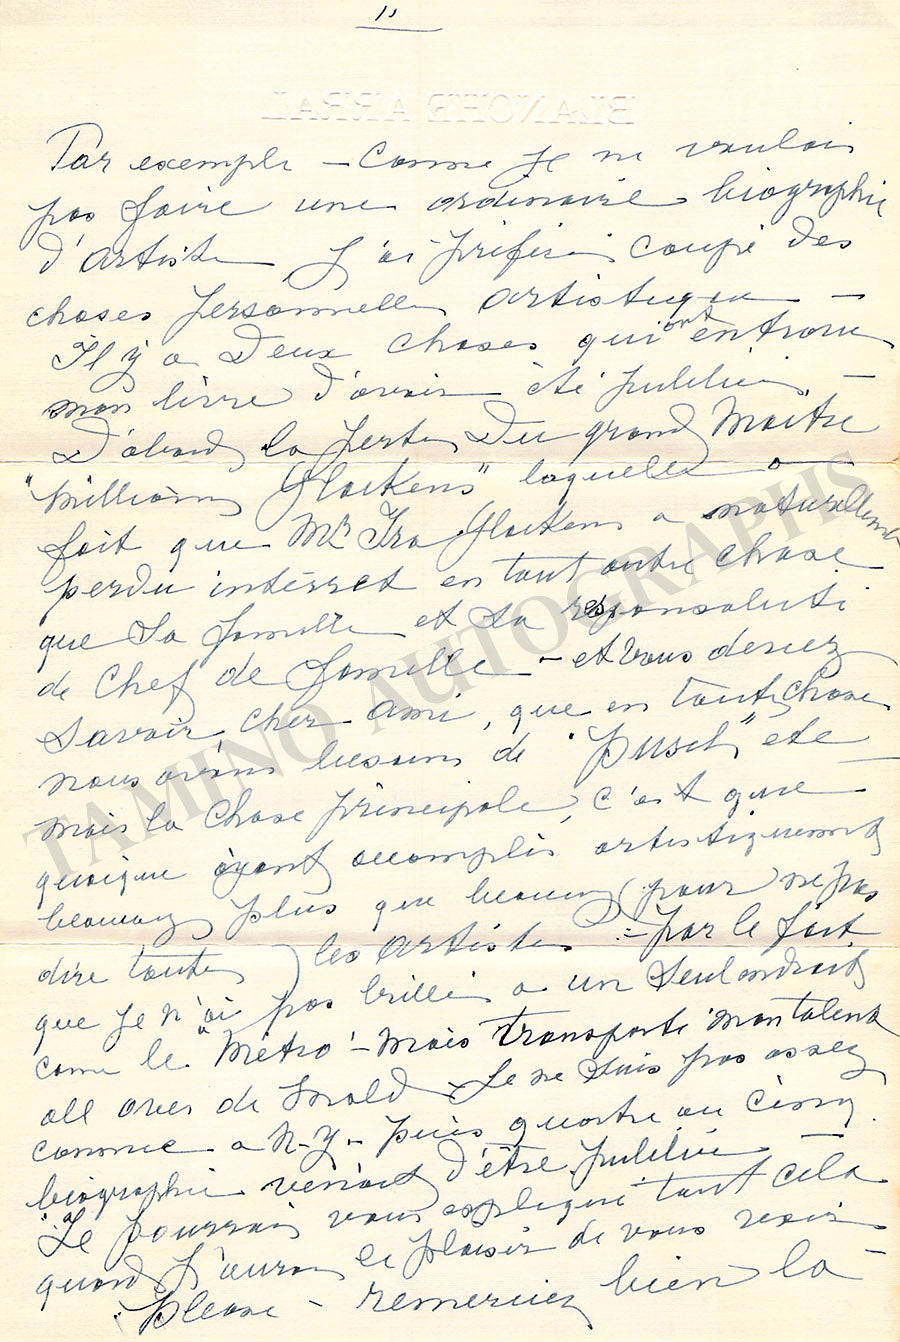 11
BLANCHE ARRAL
Par exemple – Comme je ne voulais
pas faire une ordinaire biographie
d'artiste j'ai préféré coupé des
choses personnelles artistique –
Il y a deux choses qui ont entravé
mon livre d'avoir été publié. –
D'abord la perte du grand Maître
"William Glackens" laquelle a
fait que Mr Ira Glackens a naturellement
perdu intérret en tout autre chose
que sa famille et sa responsabilité
de chef de famille – et vous devez
savoir, cher ami, que en toute chose
nous avons besoin de "push" etc –
mais la chose principale, c'est que
quoique ayant accomplis artistiquement
beaucoup plus que beaucoup (pour ne pas
dire toutes) les artistes – Par le fait
que je n'ai pas brillé a un seul endroit
come le "Métro" – Mais transporté mon talent
all over de World – Je ne suis pas assez
connue a N-Y – puis quatre ou cinq
biographie venait d'être publié –
Je pourrai vous expliqué tout cela
quand j'aurai le plaisir de vous revoir
Please – remerciez bien la –
TAMINO AUTOGRAPHS